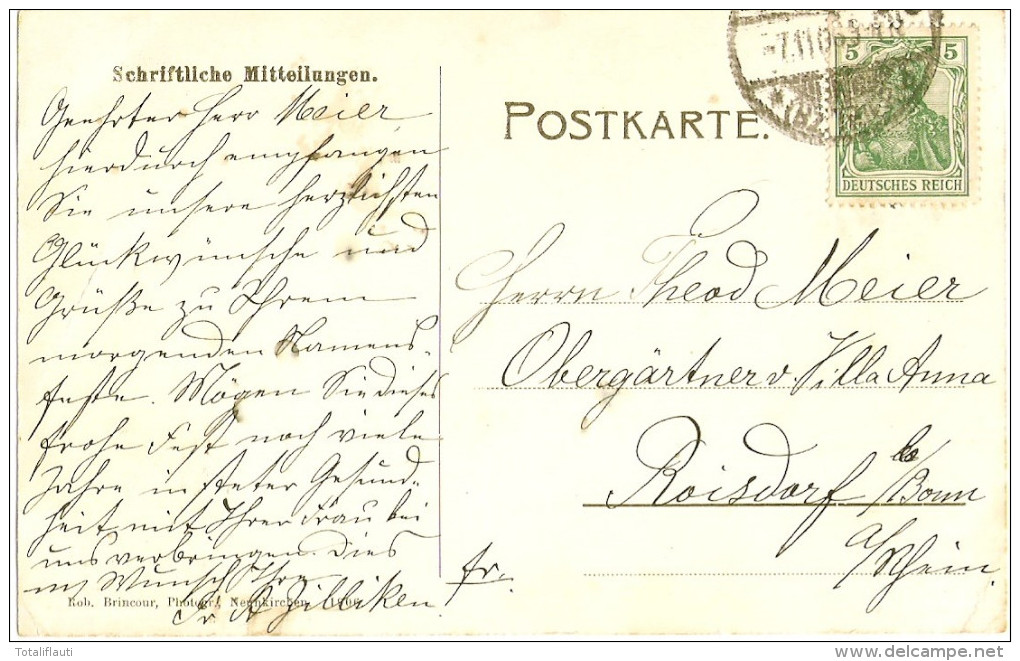 Schriftliche Mitteilungen.
Geehrter Herr Meier,
hierdurch empfangen
Sie unsere herzlichsten
Glückwünsche und
Grüße zu Ihrem
morgenden Namens-
feste. Mögen Sie dieses
frohe Fest noch viele
Jahre in steter Gesund-
heit mit Ihrer Frau bei
uns verbringen. Dies
Wunsch Ihre
Fr A Zilliken
Rob. Brincour, Photogr., Neunkirchen 1906
POSTKARTE.
5 5
DEUTSCHES REICH
Herrn Theod Meier
Obergärtner v. Villa Anna
Roisdorf b/Bonn
a/Rhein.
fr.
Totaliflauti
delcampe.net